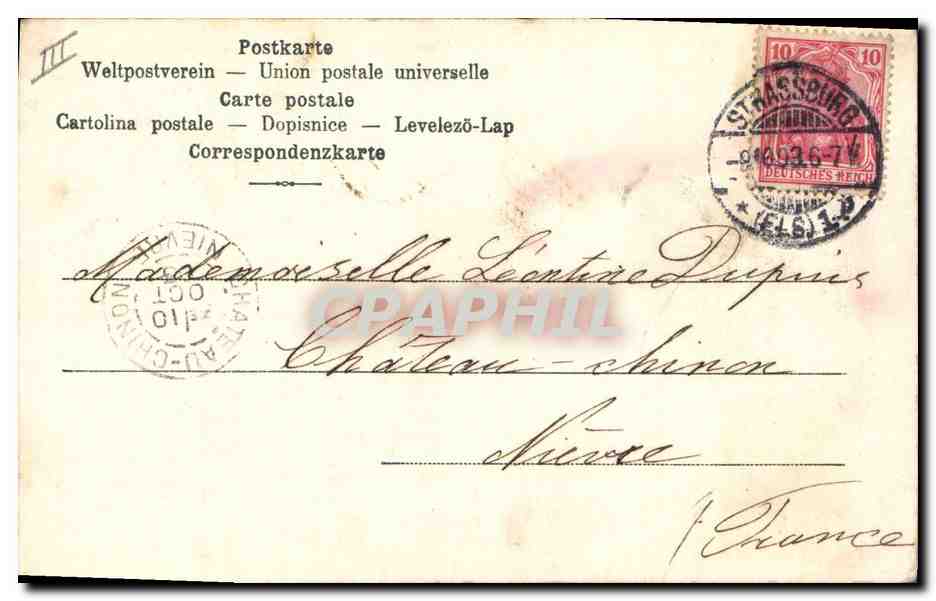 III
Postkarte
Weltpostverein — Union postale universelle
Carte postale
Cartolina postale — Dopisnice — Levelező-Lap
Correspondenzkarte
10 10
DEUTSCHES REICH
STRASSBURG
6-7
* (ELS) 1.
CHATEAU-CHINON
NIEVRE
10
OCT
Mademoiselle Léontine Dupuis
Château-chinon
Nièvre
France
CPAPHIL